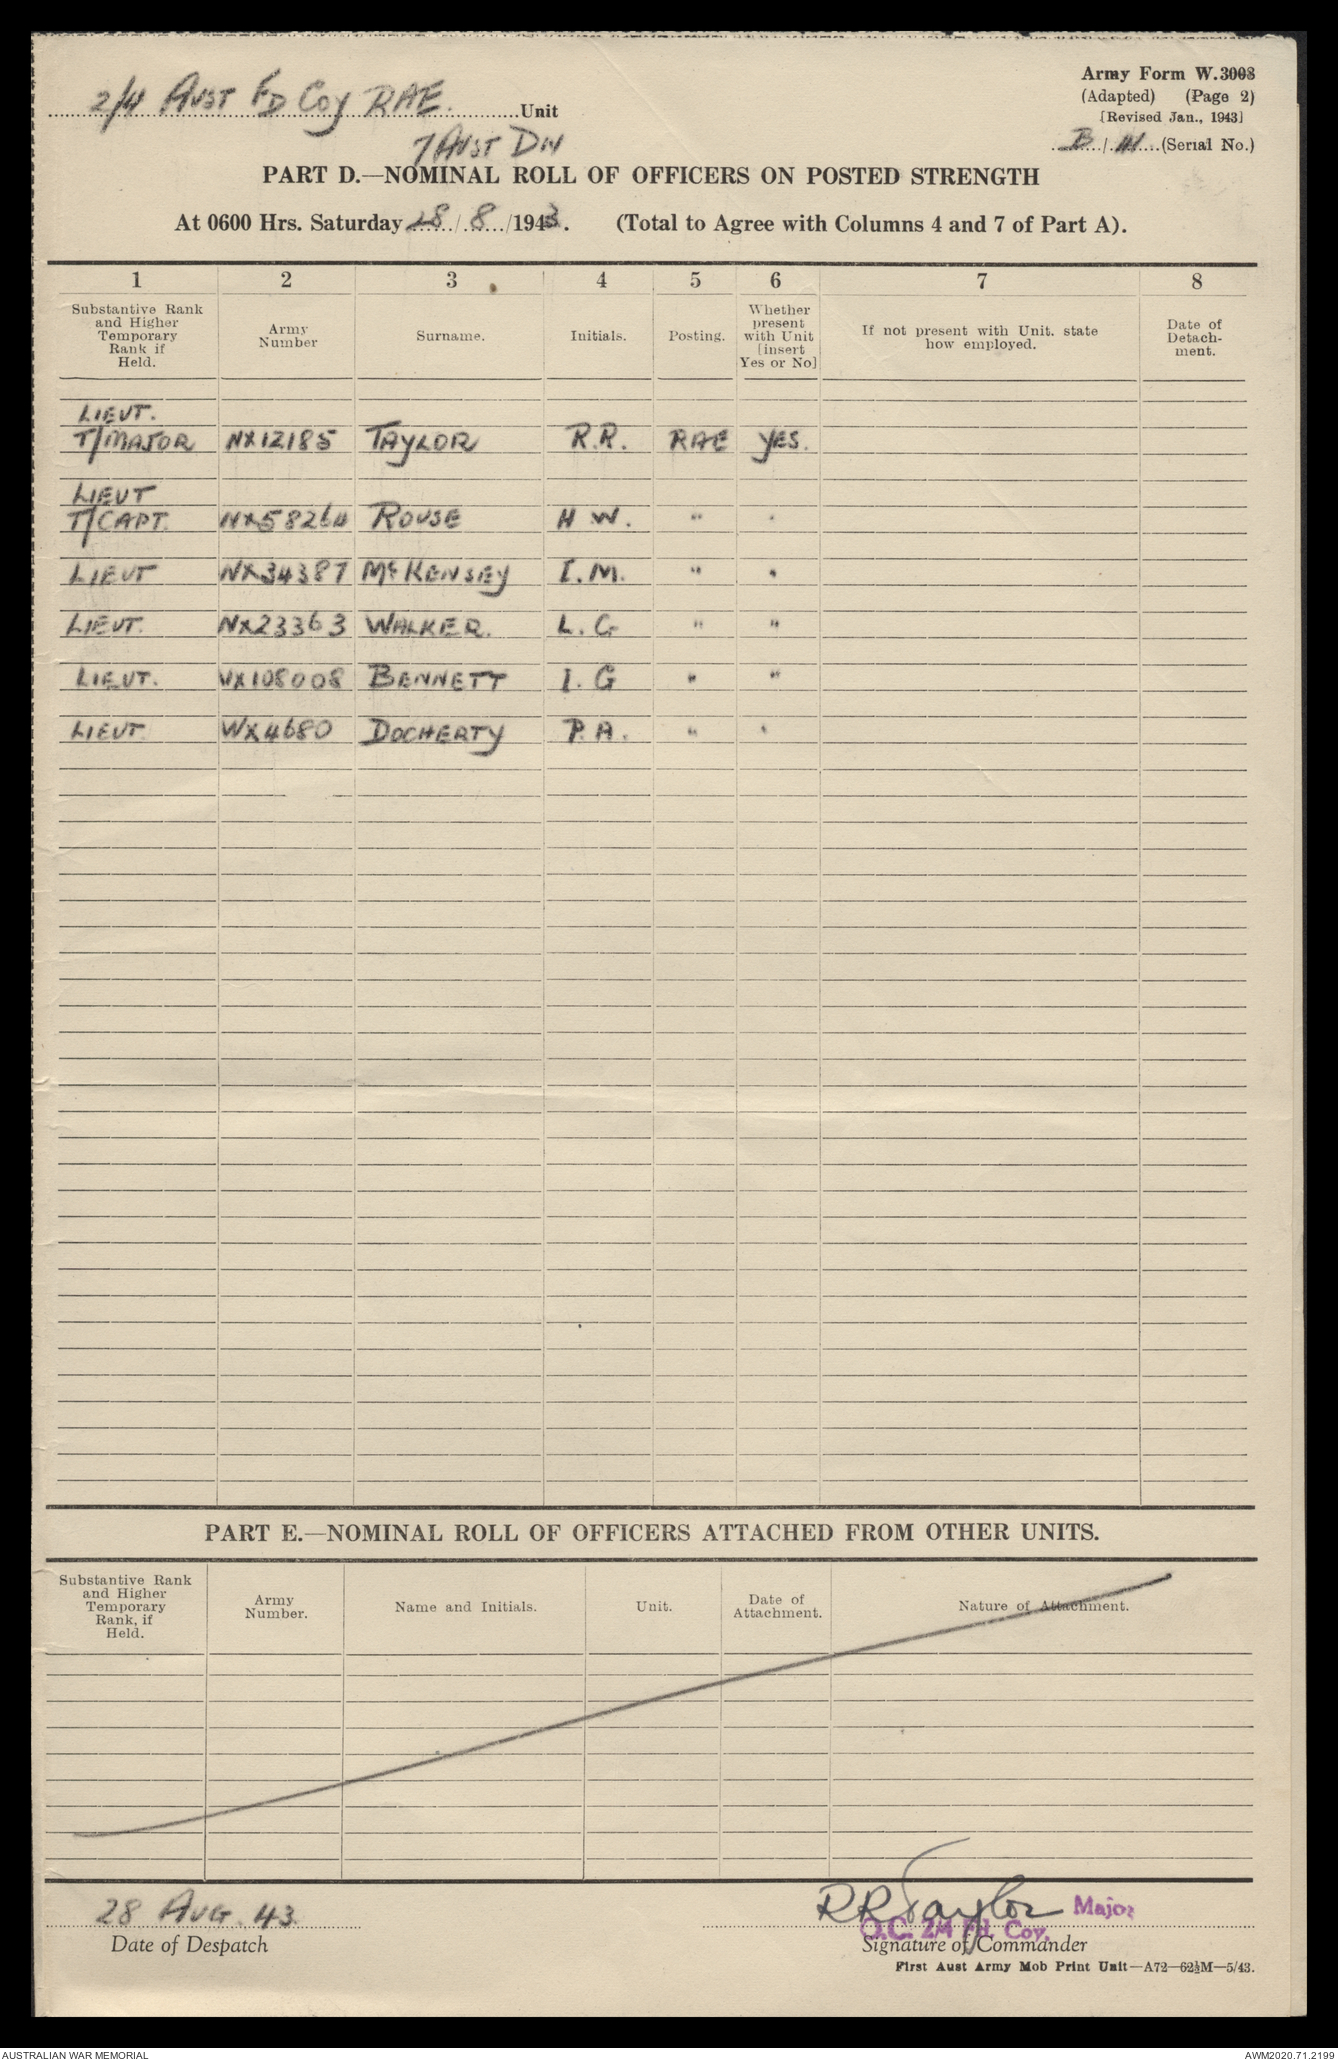 2/4 AUST FD COY RAE. Unit
7 AUST DIV
Army Form W.3008
(Adapted) (Page 2)
[Revised Jan., 1943]
B/ (Serial No.)
PART D.—NOMINAL ROLL OF OFFICERS ON POSTED STRENGTH
At 0600 Hrs. Saturday 28/8/1943. (Total to Agree with Columns 4 and 7 of Part A).
1 2 3 4 5 6 7 8
Substantive Rank and Higher Temporary Rank if Held. Army Number Surname. Initials. Posting. Whether present with Unit [insert Yes or No] If not present with Unit. state how employed. Date of Detachment.
LIEUT.
T/MAJOR NX12185 TAYLOR R.R. RAE YES.
LIEUT
T/CAPT. NX58264 ROUSE H W. " "
LIEUT NX34387 McKENSEY I.M. " "
LIEUT. NX23363 WALKER. L. G " "
LIEUT. VX108008 BENNETT I. G " "
LIEUT WX4680 DOCHERTY P.A. " "
PART E.—NOMINAL ROLL OF OFFICERS ATTACHED FROM OTHER UNITS.
Substantive Rank and Higher Temporary Rank, if Held. Army Number. Name and Initials. Unit. Date of Attachment. Nature of Attachment.
28 AUG. 43.
Date of Despatch
RR Taylor Major
O.C. 2/4 Fd. Coy.
Signature of Commander
First Aust Army Mob Print Unit—A72—62½M—5/43.
AUSTRALIAN WAR MEMORIAL
AWM2020.71.2199